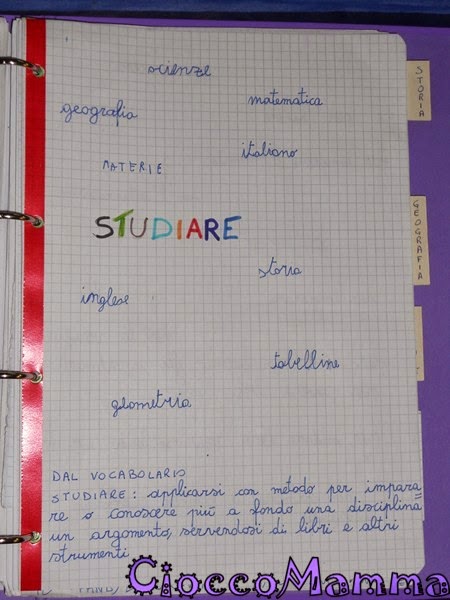 scienze
geografia
matematica
italiano
MATERIE
STUDIARE
storia
inglese
tabelline
geometria
DAL VOCABOLARIO
STUDIARE: applicarsi con metodo per impara=
re o conoscere più a fondo una disciplina
un argomento, servendosi di libri e altri
strumenti
STORIA
GEOGRAFIA
CioccoMamma